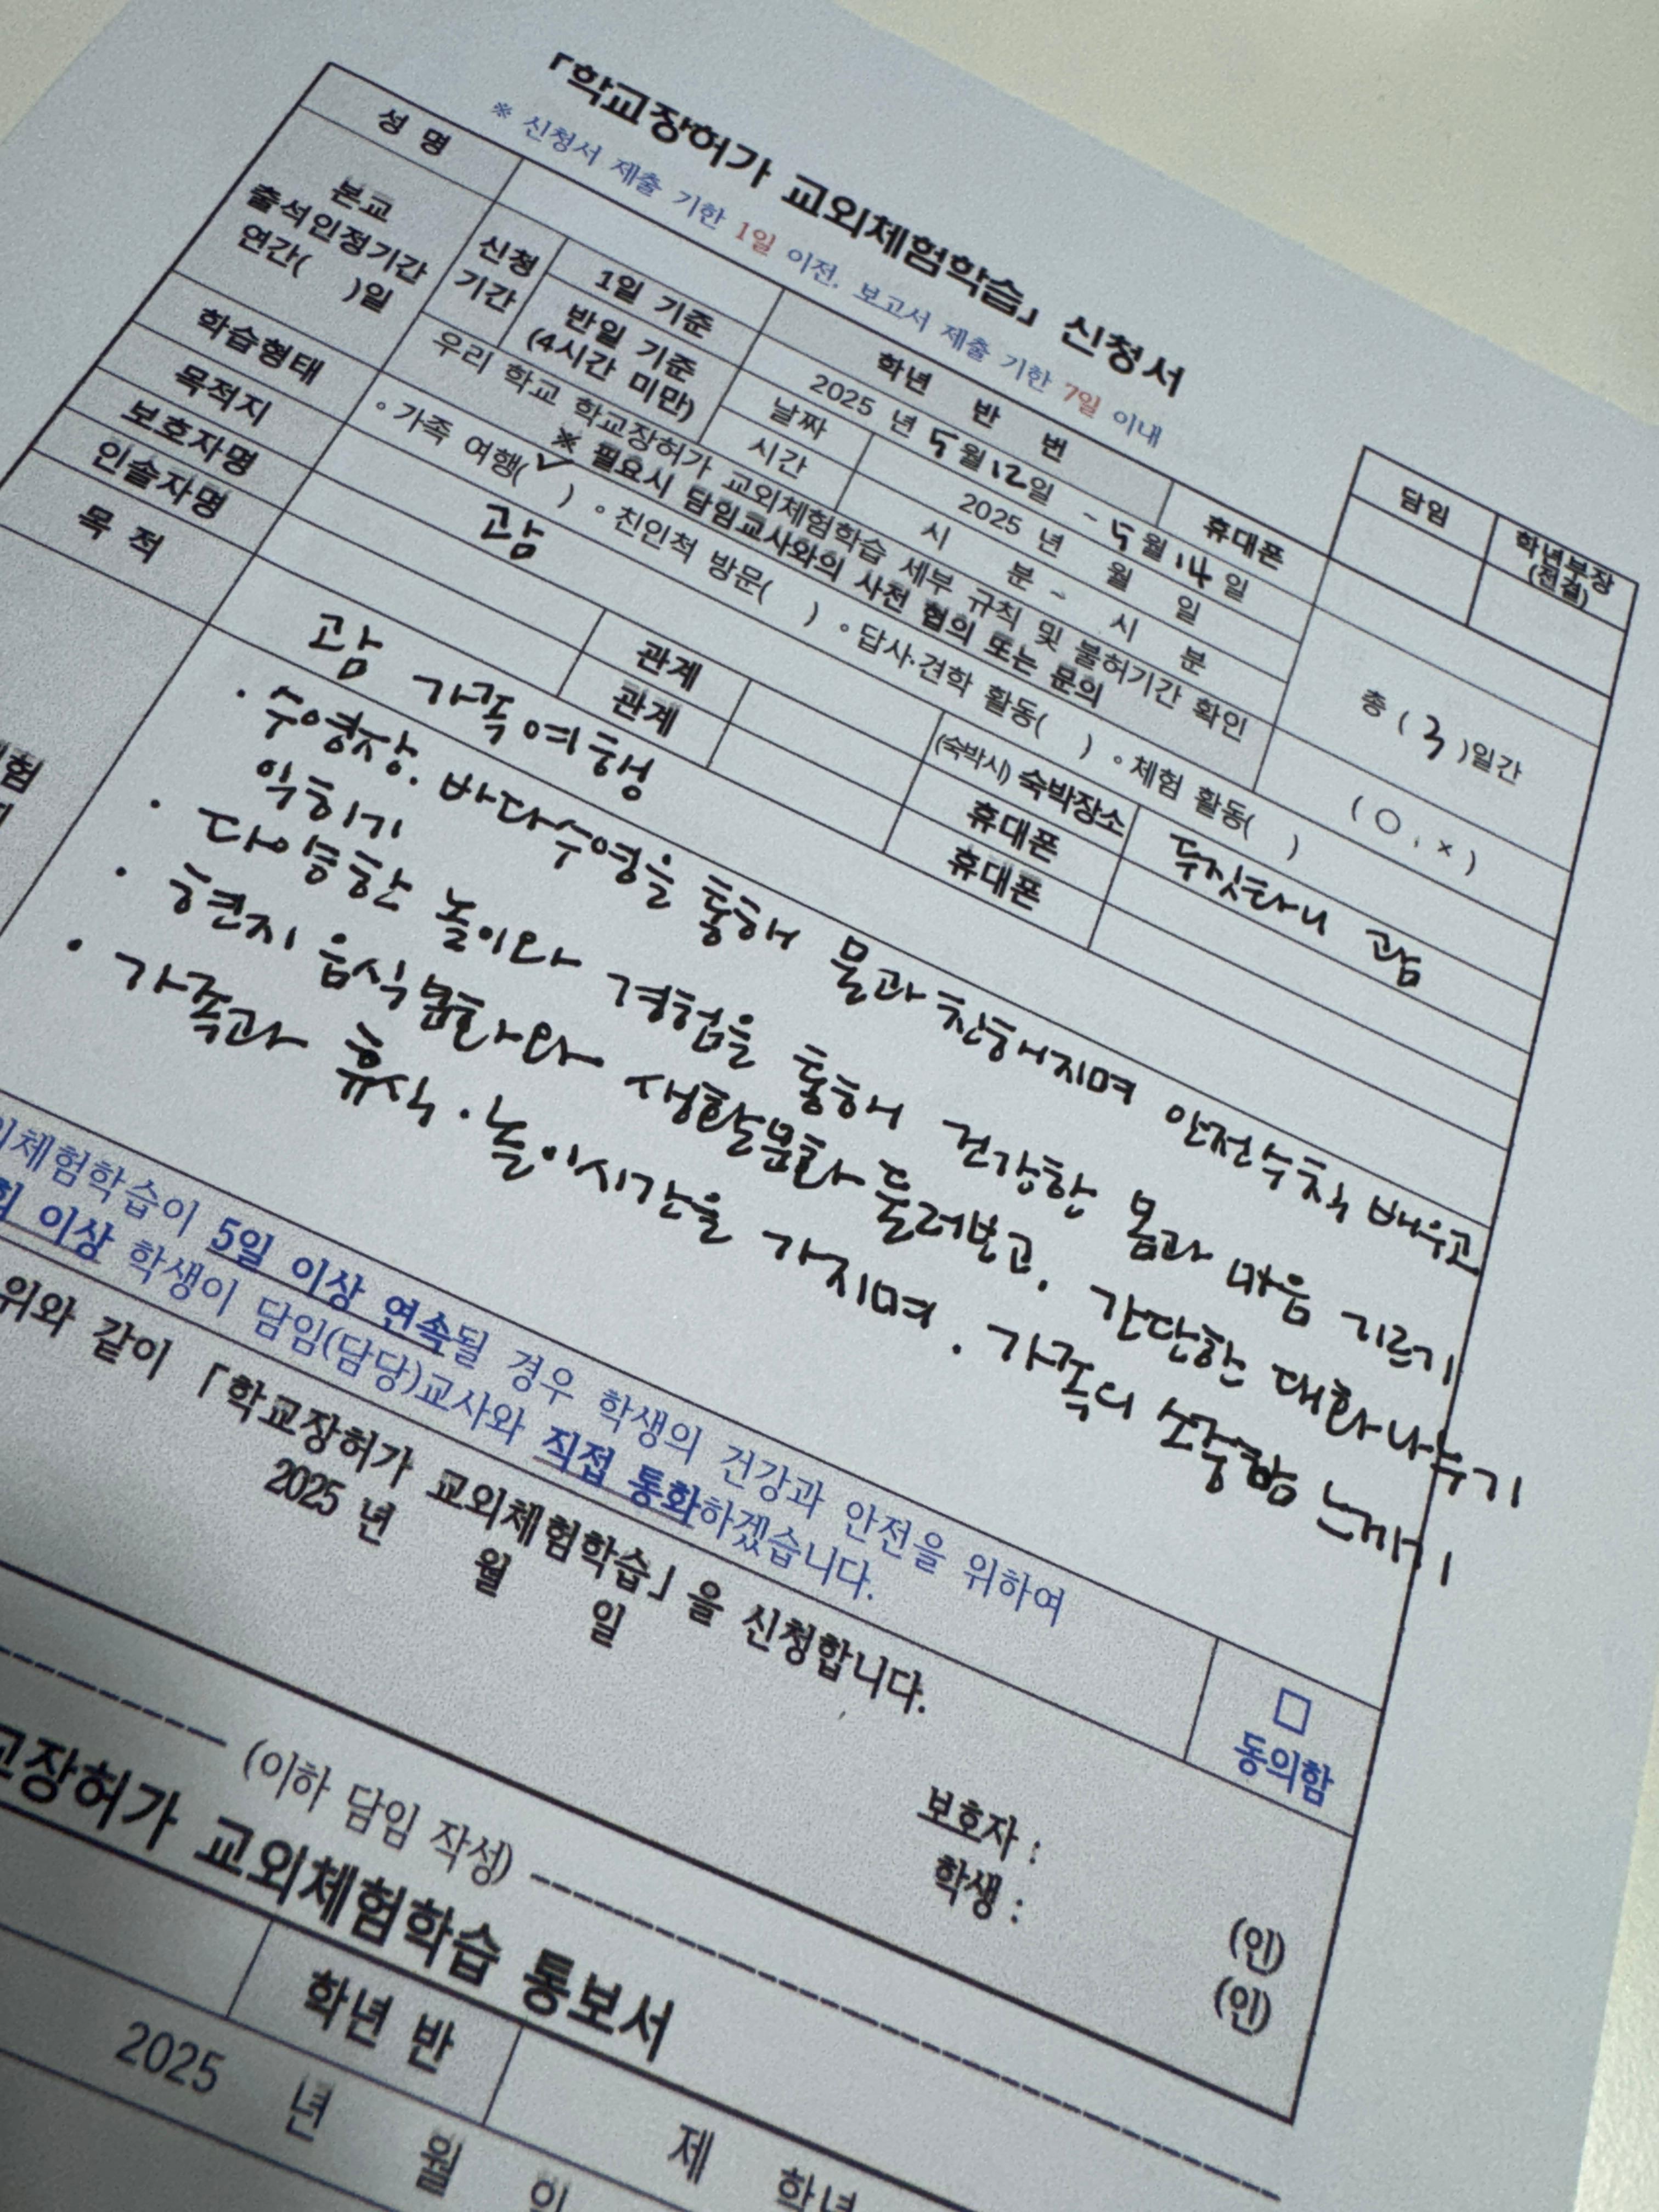 「학교장허가 교외체험학습」 신청서
※ 신청서 제출 기한 1일 이전, 보고서 제출 기한 7일 이내
담임 학년부장
(전결)
성 명 학년 반 번 휴대폰
본교
출석인정기간
연간( )일
신청
기간
1일 기준 2025 년 5월 12일 ~ 5월 14일 총 ( 3 )일간
반일 기준
(4시간 미만)
날짜 2025 년 월 일
시간 시 분 ~ 시 분
우리 학교 학교장허가 교외체험학습 세부 규칙 및 불허기간 확인
※ 필요시 담임교사와의 사전 협의 또는 문의
( ○ , × )
학습형태 ◦가족 여행(✓ ) ◦친인척 방문( ) ◦답사·견학 활동( ) ◦체험 활동( )
목적지 괌 (숙박시) 숙박장소 두짓타니 괌
보호자명 관계 휴대폰
인솔자명 관계 휴대폰
목 적 괌 가족여행
· 수영장, 바다수영을 통해 물과 친해지며 안전수칙 배우고
익히기
· 다양한 놀이와 경험을 통해 건강한 몸과 마음 기르기
· 현지 음식문화와 생활문화 둘러보고, 간단한 대화나누기
· 가족과 휴식·놀이시간을 가지며, 가족의 소중함 느끼기
체험학습이 5일 이상 연속될 경우 학생의 건강과 안전을 위하여
이상 학생이 담임(담당)교사와 직접 통화하겠습니다.
□
동의함
위와 같이 「학교장허가 교외체험학습」을 신청합니다.
2025 년 월 일
보호자 : (인)
학생 : (인)
(이하 담임 작성)
교장허가 교외체험학습 통보서
학년 반 제 학년
2025 년 월 일